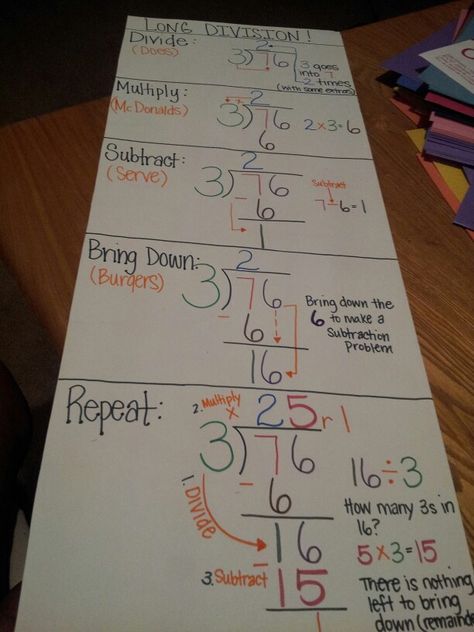 LONG DIVISION!
Divide:
(Does)
2
3)76
3 goes
into 7
2 times
(with some extras)
Multiply:
(McDonalds)
2
3)76
6
2x3=6
Subtract:
(Serve)
2
3)76
-6
1
Subtract
7-6=1
Bring Down:
(Burgers)
2
3)76
-6
16
Bring down the
6 to make a
Subtraction
Problem
Repeat:
2. Multiply
x
25 r1
3)76
-6
16
1. Divide
3. Subtract
-15
1
16÷3
How many 3s in
16?
5x3=15
There is nothing
left to bring
down